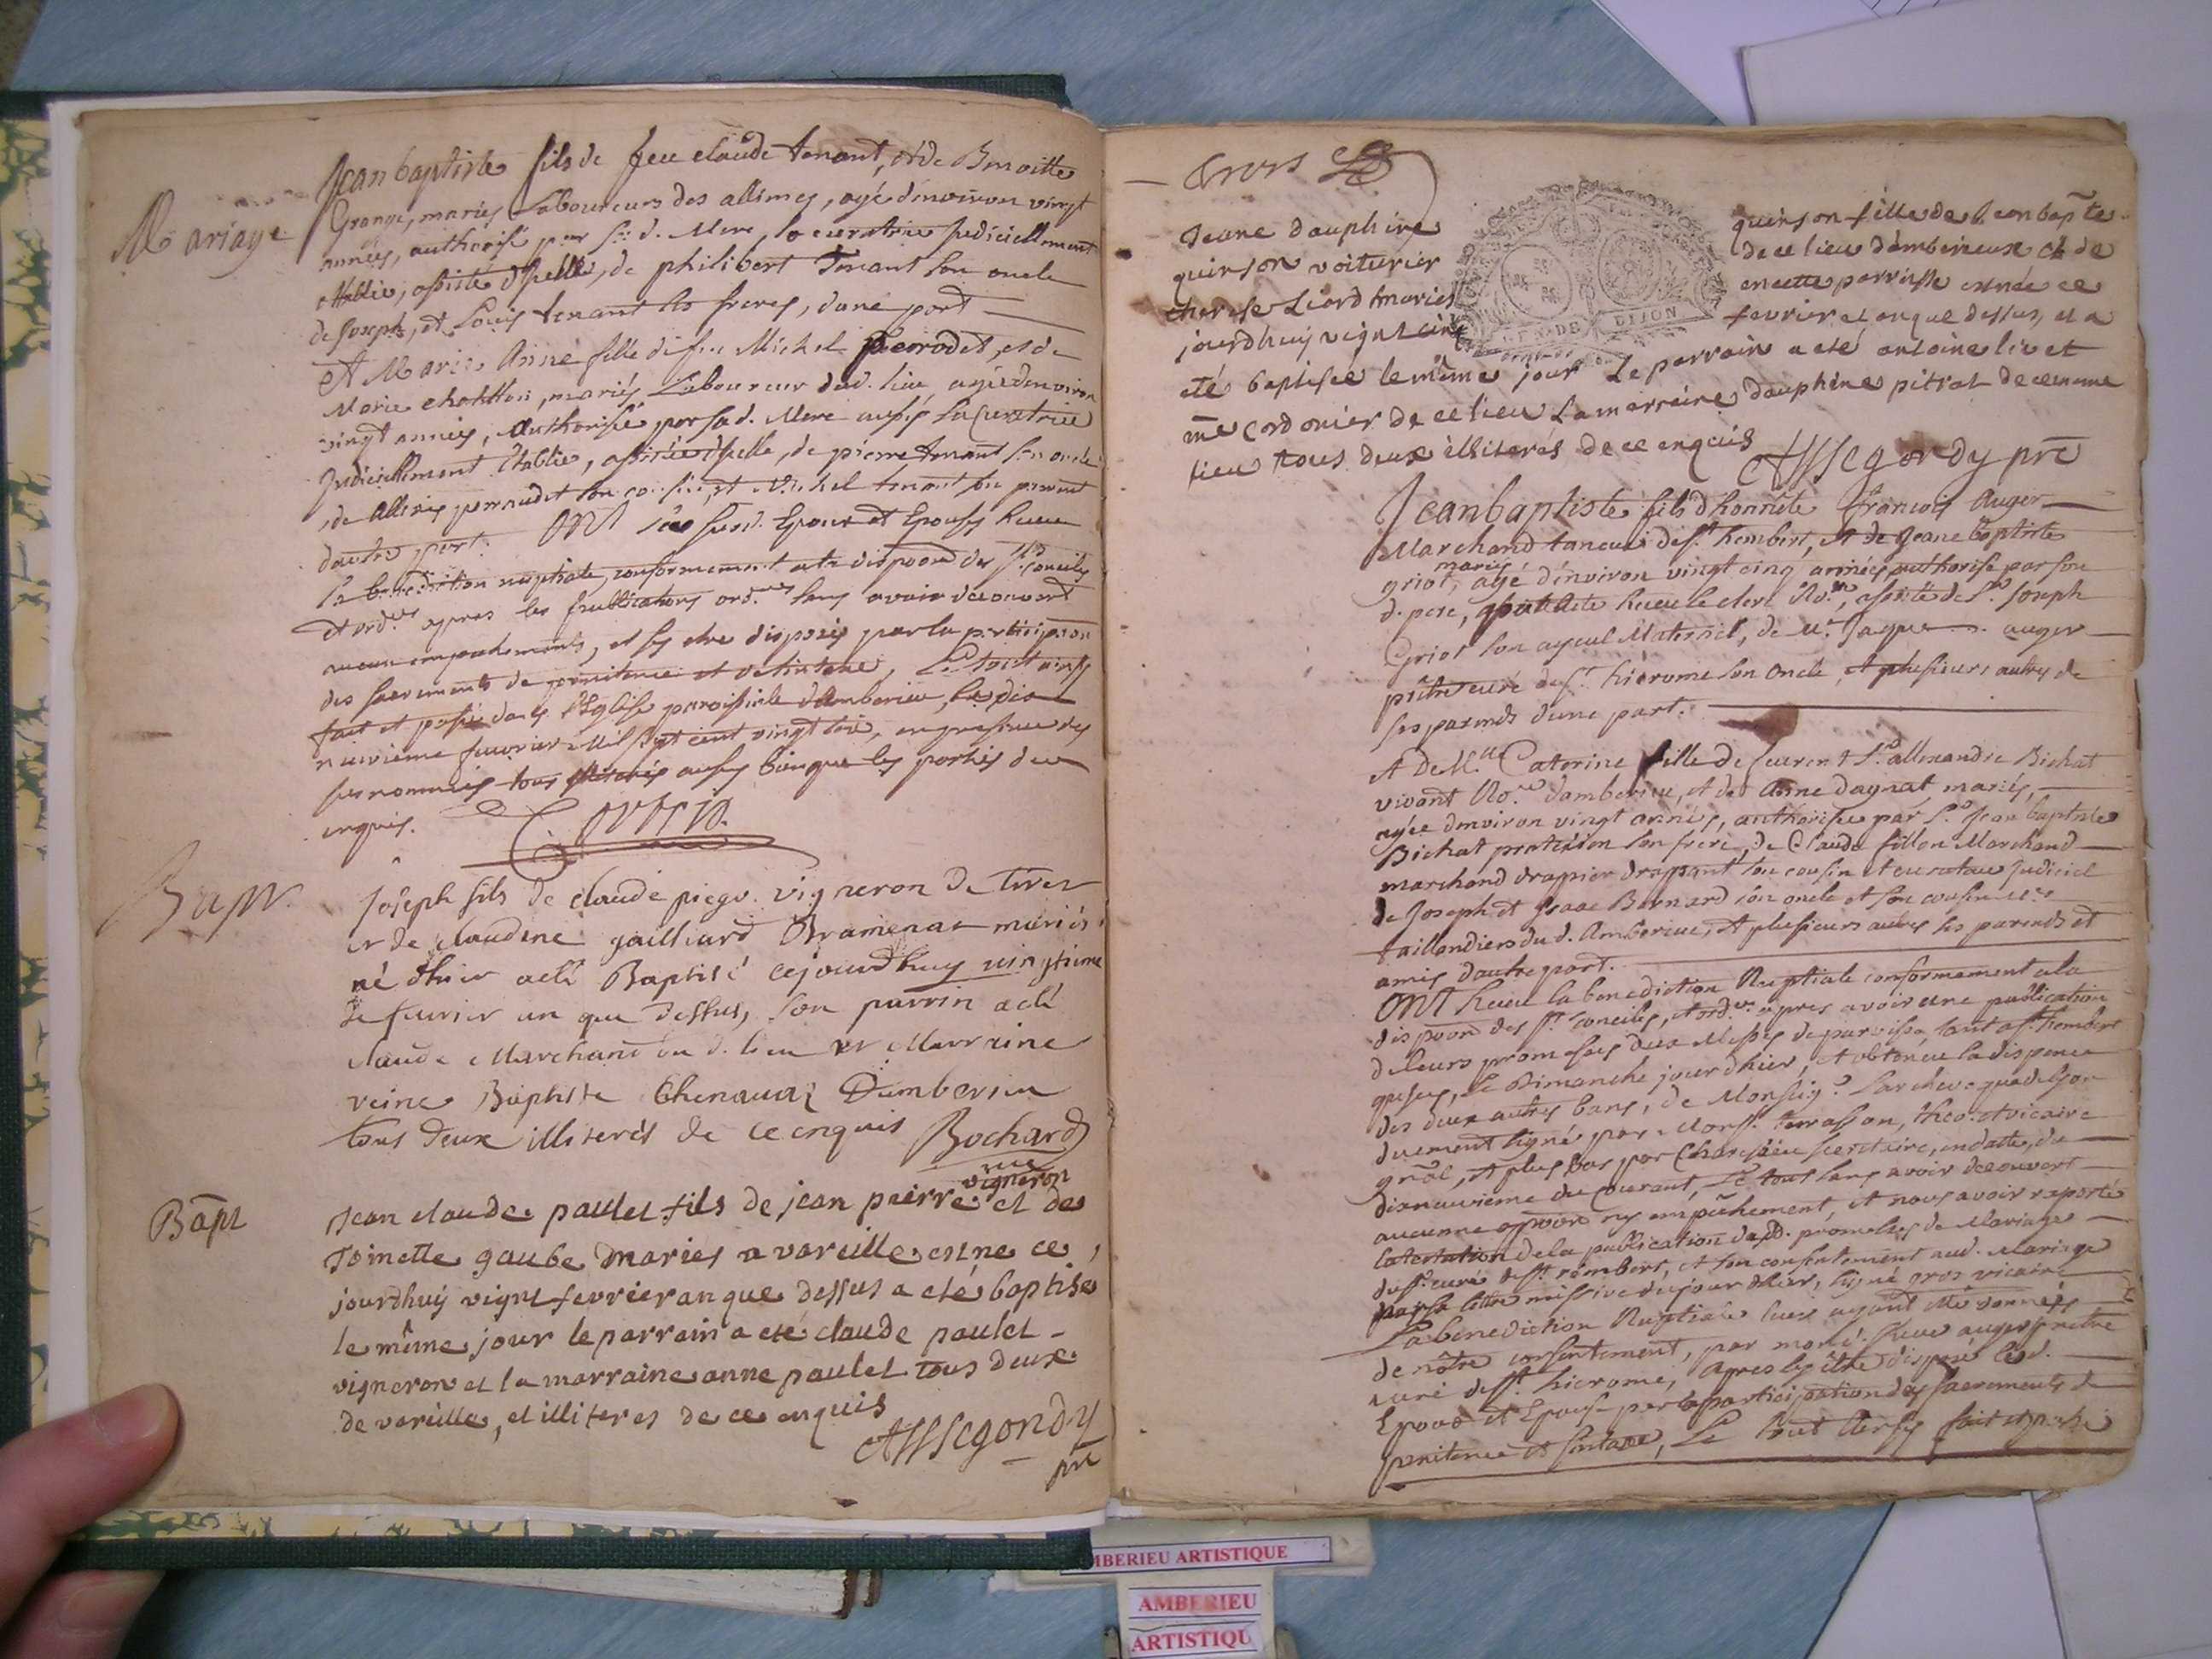 Mariage
Jean baptiste fils de feu claude tenant, et de Benoitte
Grange, mariés Laboureurs des allimes, agé denviron vingt
années, authorisé par sa d. Mere, sa curatrice Judiciellement
etablie, assisté d'icelle, de philibert Tenant son oncle
de Joseph, et Louis tenant ses freres, dune part
Et Marie Anne fille de feu Michel perrodet, et de
Marie, mariés Laboureur dud. lieu agée denviron
vingt années, Authorisée par sa d. Mere aussy sa Curatrice
Judiciellement Etablie, assistée d'icelle, de pierre tenant son oncle
de son cousin, et Michel tenant son parent
dautre part. ONT les susd. Epoux et Epouse, Receu
la benediction nuptiale, conformement aux des Sts. conciles
et ord.res apres les publications ord.res sans avoir découvert
aucun empechements, et sy etre disposés par la
des sacrements de penitence et, Le tout ainsy
fait et passé dans l'Eglise paroissiale d'Amberieu, le dix
neuvieme fevrier Mil sept cent vingt, en presence des
susnommés tous aussy bien que les parties de ce
enquis.
Bapt.
Joseph fils de claude vigneron de
et de claudine gailliard mariés
né dhier a eté Baptisé cejourdhuy vingtieme
de fevrier an que dessus, son parrin a eté
claude Marchand du d. lieu et Marraine
reine Baptiste Chenavaz Damberieu
tous deux illiterés de ce enquis Bochard
vic
Bapt
vigneron
Jean claude paulet fils de jean pierre et de
Toinette gaube mariés a vareille est né ce
jourdhuy vignt fevrier an que dessus a eté baptisé
le même jour le parrain a eté claude paulet
vigneron et la marraine anne paulet tous deux
de vareille, et illiteres de ce enquis
Assegondy
pre
trois
Jeane dauphine
quinson voiturier
therese Liard mariés
jourdhuy vignt cinq
GEN DE DIJON
quinson fille de Jean bapte
de ce lieu d'amberieux et de
en cette parroisse est née ce
fevrier an que dessus, et a
eté baptisée le même jour Le parrain a eté antoine livet
me cordonier de ce lieu La marraine dauphine pitrat de ce meme
lieu tous deux illiterés de ce enquis
Assegondy pre
Jean baptiste fils d'honnête Francois Auger
Marchand taneur de St. Rembert, et de Jeane baptiste
mariés
griot, agé d'environ vingt cinq années, authorisé par son
d. pere, assisté de Sr. Joseph
Griot son ayeul Maternel, de Mr. Jaque auger
prêtre curé de St. hierome son oncle, et plusieurs autres de
ses parents d'une part.
et De M.lle Caterine fille de Sr. allexandre Bichat
vivant No.re damberieu, et de Anne Dagnat mariés,
agée denviron vingt années, authorisée par Sr. Jean baptiste
Bichat praticien son frere, de Claude fillon Marchand
marchand drapier drapant son cousin et curateur Judiciel
de Joseph et Isaac Bernard son oncle et son cousin
taillandiers du d. Amberieu, et plusieurs autres ses parents et
amis dautre part.
ONT Receu la benediction Nuptiale conformement a la
des Sts. conciles, et ord.res apres avoir une publication
de leurs promesses aux Messes de paroisse, tant a St. Rembert
qu'icy, le Dimanche jourdhier, et obtenue la dispence
des deux autres bans, de Monseig.r L'archeveque de Lyon
duement signé par Mons.r terrasson, et vicaire
gnal, et plus bas par secretaire, en datte, du
dixneuvieme du Courant, Le tout sans avoir découvert
aucunne ny empêchement, et nous avoir raporté
de la publication desd. promesses de Mariage
du Sr. curé de St. rembert, et son consentement aud. Mariage
par sa lettre missive du jour dhier, signé gros vicaire
La benediction Nuptiale leur ayant été donnée
de nôtre consentement, par auger prêtre
curé de St. hierome, Apres s'y être disposé lesd.
Epoux et Epouse par la participation des sacrements de
penitence et, Le tout fait et passé
AMBERIEU ARTISTIQUE
AMBERIEU
ARTISTIQU